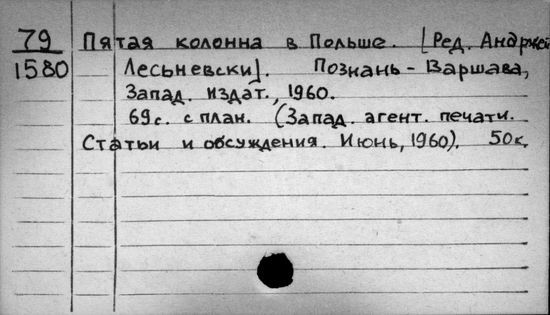 79 Пятая колонна в Польше. [Ред. Анджей
1580 Лесьневски]. Познань - Варшава,
Запад. издат., 1960.
69с. с план. (Запад. агент. печати.
Статьи и обсуждения. Июнь, 1960). 50к.